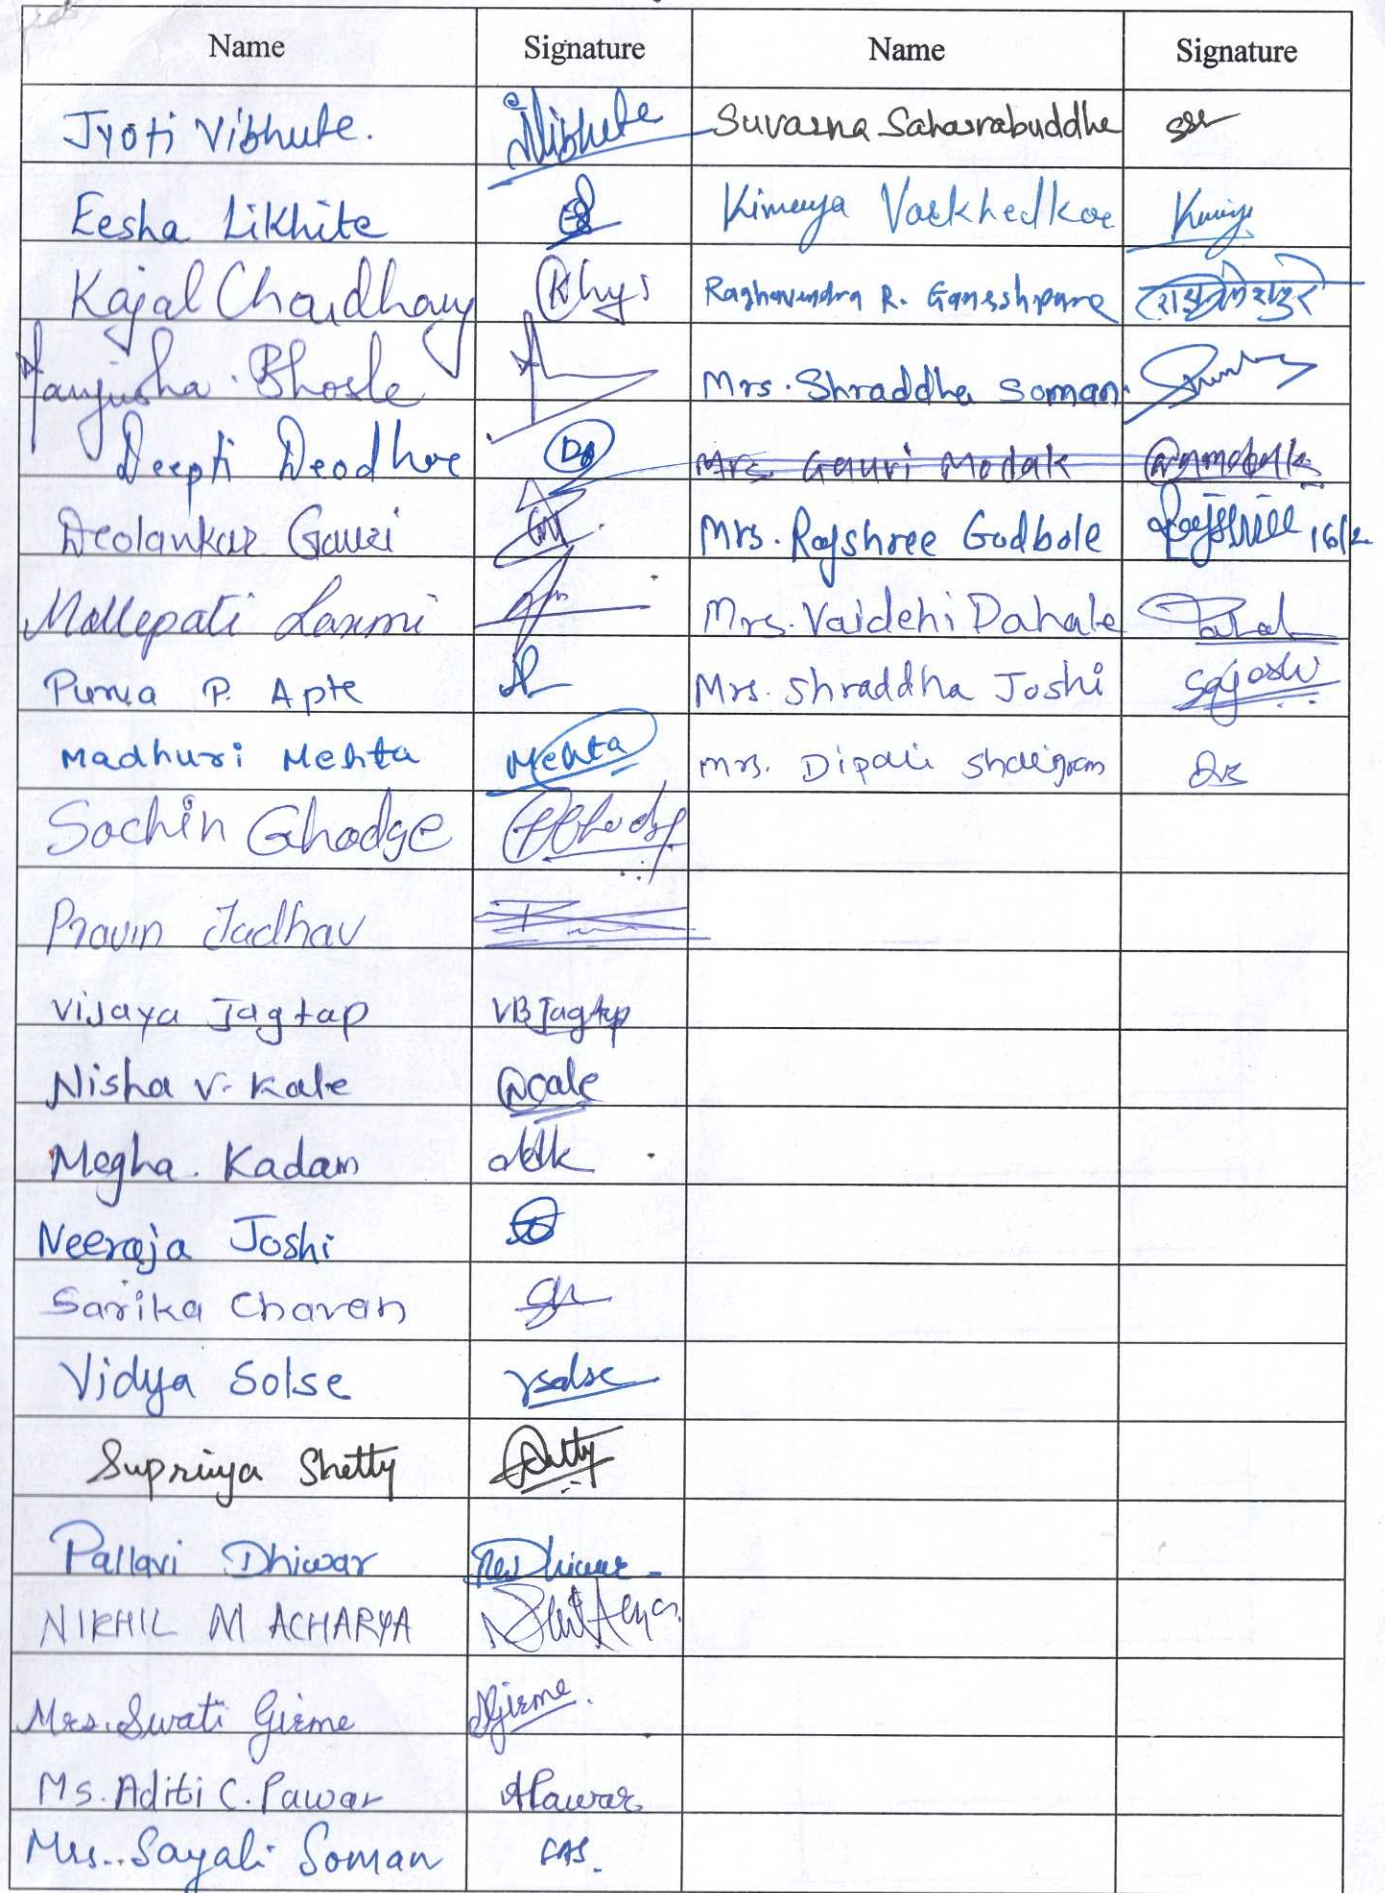 Name Signature Name Signature
Jyoti Vibhute. Vibhute Suvarna Sahasrabuddhe
Eesha Likhite Kimaya Varkhedkar
Kajal Chaudhary Raghavendra R. Ganeshpure
Manjusha Bhosle Mrs. Shraddha Soman
Deepti Deodhar Mrs. Gauri Modak
Deolankar Gauri Mrs. Rajshree Godbole 16/2
Mallepati Laxmi Mrs. Vaidehi Dahale
Purva P. Apte Mrs. Shraddha Joshi
Madhuri Mehta Mehta Mrs. Dipali Shaligram
Sachin Ghodge
Pravin Jadhav
Vijaya Jagtap VBJagtap
Nisha V. Kale
Megha. Kadam
Neeraja Joshi
Sarika Chavan
Vidya Solse vsolse
Supriya Shetty
Pallavi Dhiwar
NIKHIL M ACHARYA
Mrs. Swati Girme Girme.
Ms. Aditi C. Pawar APawar
Mrs. Sayali Soman SAS.